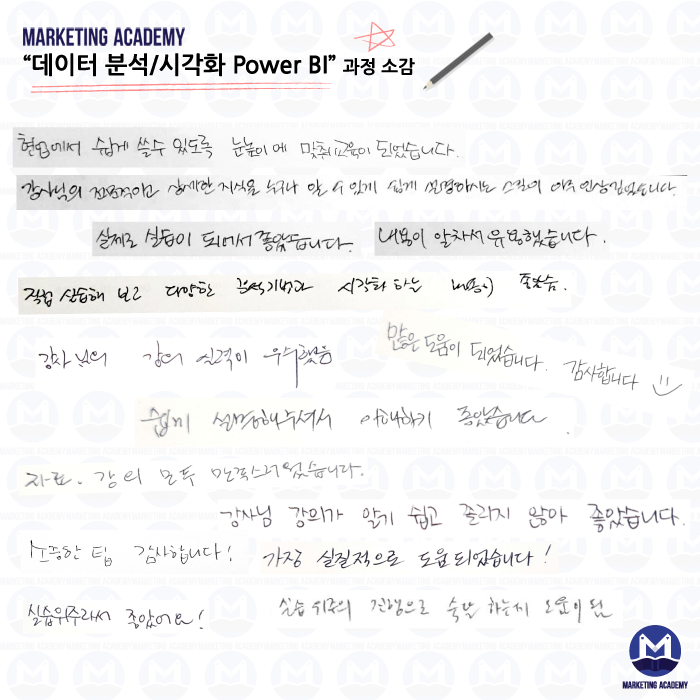 MARKETING ACADEMY
“데이터 분석/시각화 Power BI” 과정 소감
현업에서 쉽게 쓸수 있도록 눈높이에 맞춰교육이 되었습니다.
강사님의 전문적이고 상세한 지식을 누구나 알 수 있게 쉽게 설명하시는 스킬이 아주 인상깊었습니다.
실제로 실습이 되어서 좋았습니다. 내용이 알차서 유용했습니다.
직접 실습해 보고 다양한 분석기법과 시각화 하는 내용이 좋았음.
강사님의 강의 실력이 우수했음
많은 도움이 되었습니다. 감사합니다
쉽게 설명해주셔서 이해하기 좋았습니다.
자료, 강의 모두 만족스러웠습니다.
강사님 강의가 알기 쉽고 졸리지 않아 좋았습니다.
소중한 팁 감사합니다! 가장 실질적으로 도움되었습니다!
실습위주라서 좋았어요! 실습 위주의 진행으로 숙달 하는데 도움이 됨
MARKETING ACADEMY